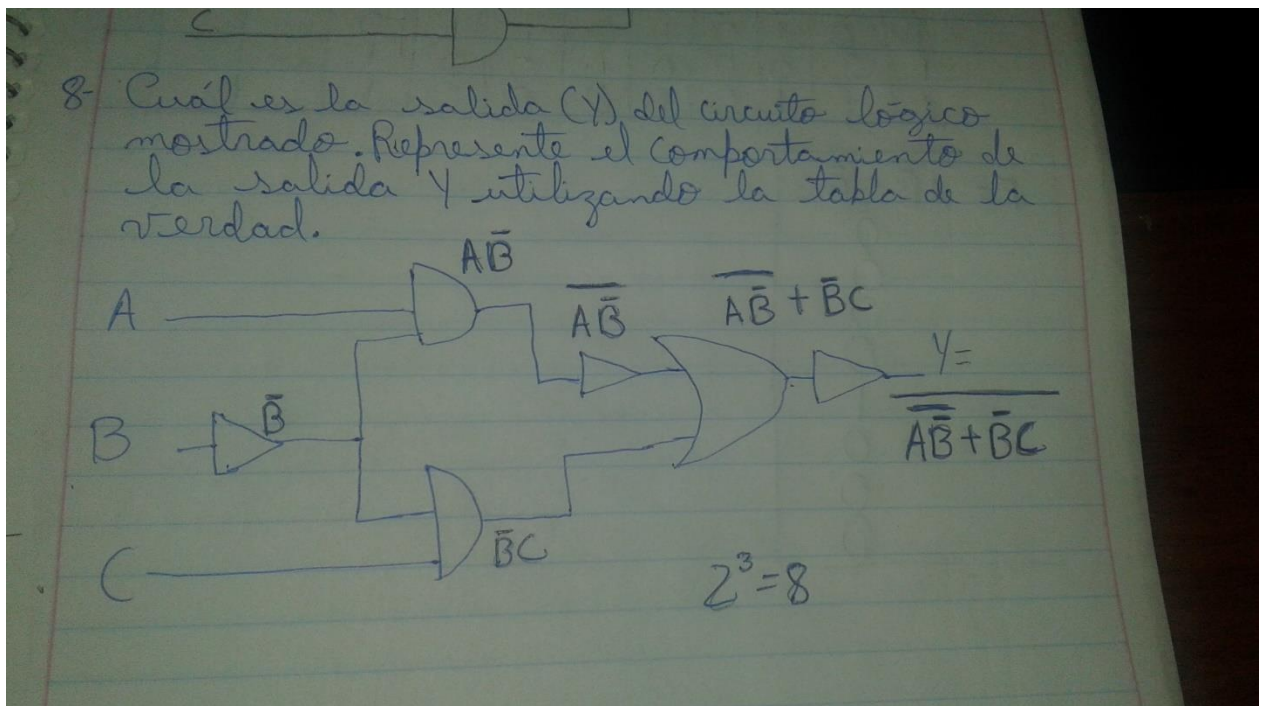 C
8- Cuál es la salida (Y) del circuito lógico
mostrado. Represente el comportamiento de
la salida Y utilizando la tabla de la
verdad.
AB̅
A
\overline{AB̅}
\overline{AB̅} + B̅C
Y=
\overline{\overline{AB̅} + B̅C}
B
B̅
B̅C
C
2³=8